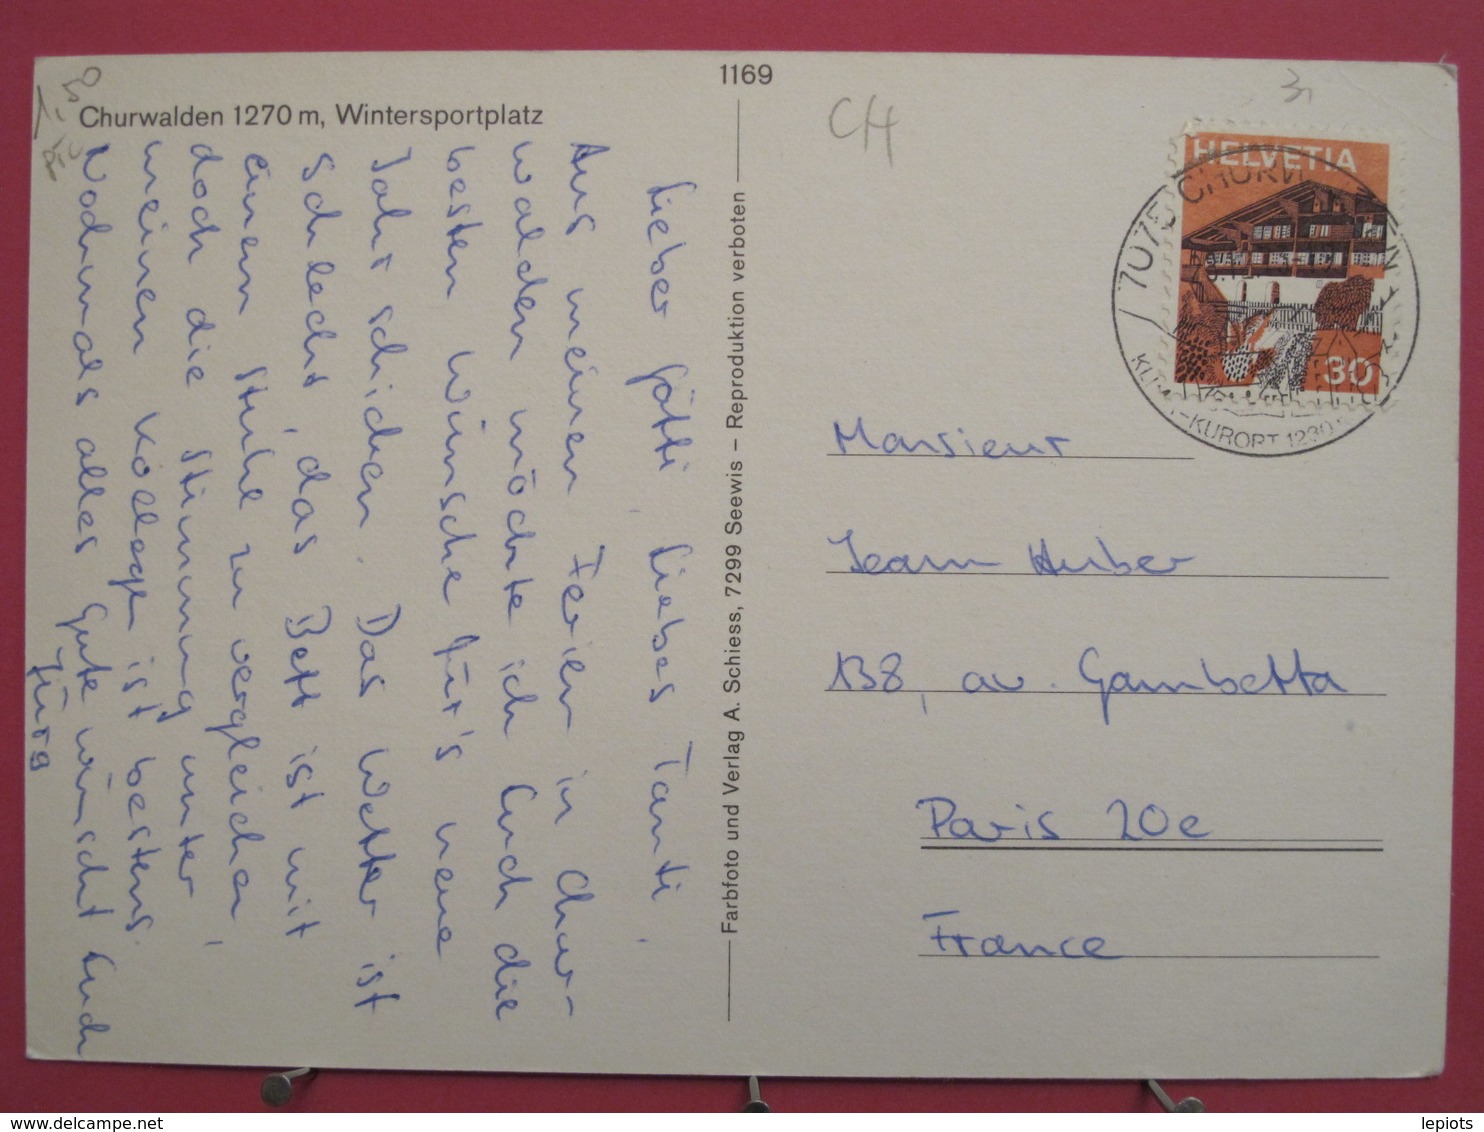 1169
Churwalden 1270 m, Wintersportplatz
CH
Lieber Götti, Liebes Tanti,
Aus meinen Ferien in Chur-
walden möchte ich Euch die
besten Wünsche für's neue
Jahr schicken. Das Wetter ist
schlecht, das Bett ist mit
einem Stuhl zu vergleichen,
doch die Stimmung unter
meinen Kollegen ist bestens.
Nochmals alles Gute wünscht Euch
Jürg
Farbfoto und Verlag A. Schiess, 7299 Seewis – Reproduktion verboten
HELVETIA
30
7075 CHURWALDEN
KLIMA-KURORT 1230
Monsieur
Jean Huber
138, av. Gambetta
Paris 20e
France
www.delcampe.net
lepiots